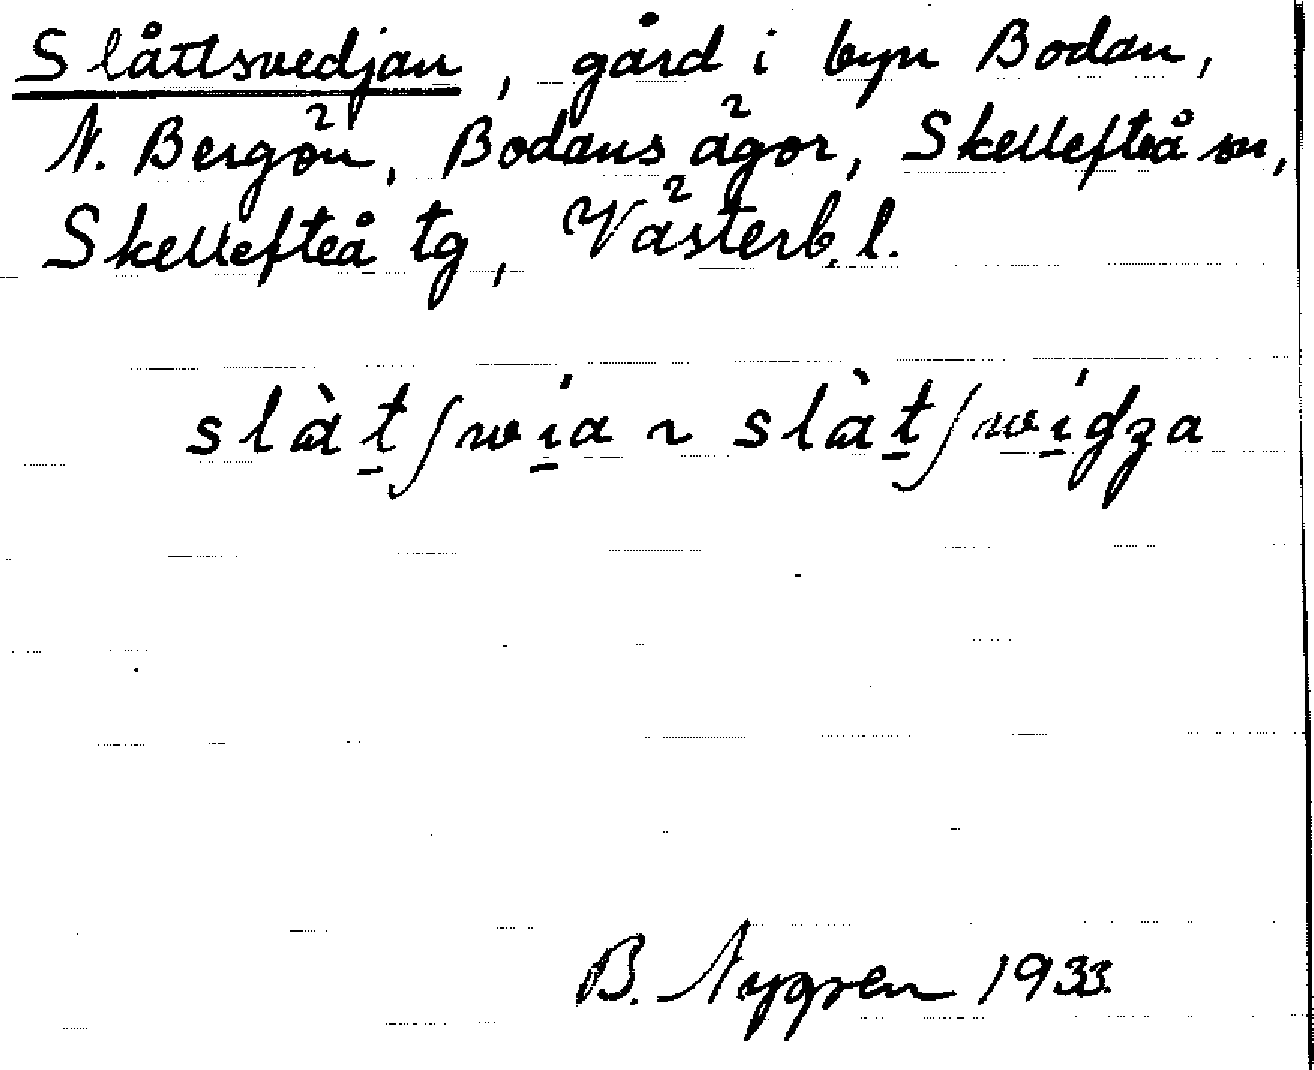 Slåttsvedjan, gård i byn Bodan,
N. Bergön, Bodans ägor, Skellefteå sn,
Skellefteå tg, Västerb. l.
B. Nygren 1933